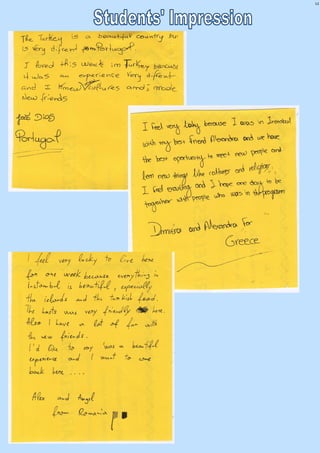 Students' Impression
The Turkey is a beautiful country but
is very difrent from Portugal.
I loved this week in Turkey because
it was an experience very different
and I knew cultures and, made
new friends
José Dias
Portugal
I feel very lucky because I was in Istanbul
with my best friend Alexandra and we have
the best oportunity to meet new people and
lern new things like cultures and religion.
I feel exciting and I hope one day to be
together with people who was in this program
Dimitra and Alexandra from
Greece
I feel very lucky to live here
for one week because everything in
Instambul is beautiful, especially
the islands and the turkish food.
The hosts was very friendly here.
Also I have a lot of fun with
the new friends.
I'd like to say was a beautiful
experience and I want to come
back here ....
Alex and Angel
from Romania